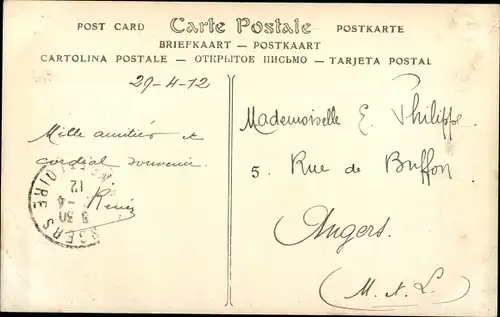 POST CARD Carte Postale POSTKARTE
BRIEFKAART — POSTKAART
CARTOLINA POSTALE — ОТКРЫТОЕ ПИСЬМО — TARJETA POSTAL
29-4-12
Mille amitiés et
cordial souvenir.
Renée
Mademoiselle E. Philippe
5. Rue de Buffon
Angers.
(M. & L.)
ANGERS
LOIRE
12
-4
8 30